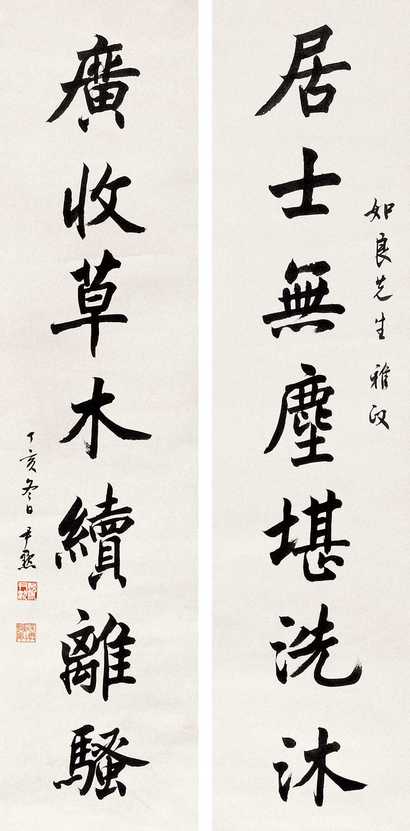 如良先生雅政
居士無塵堪洗沐
廣收草木續離騷
丁亥冬日尹默